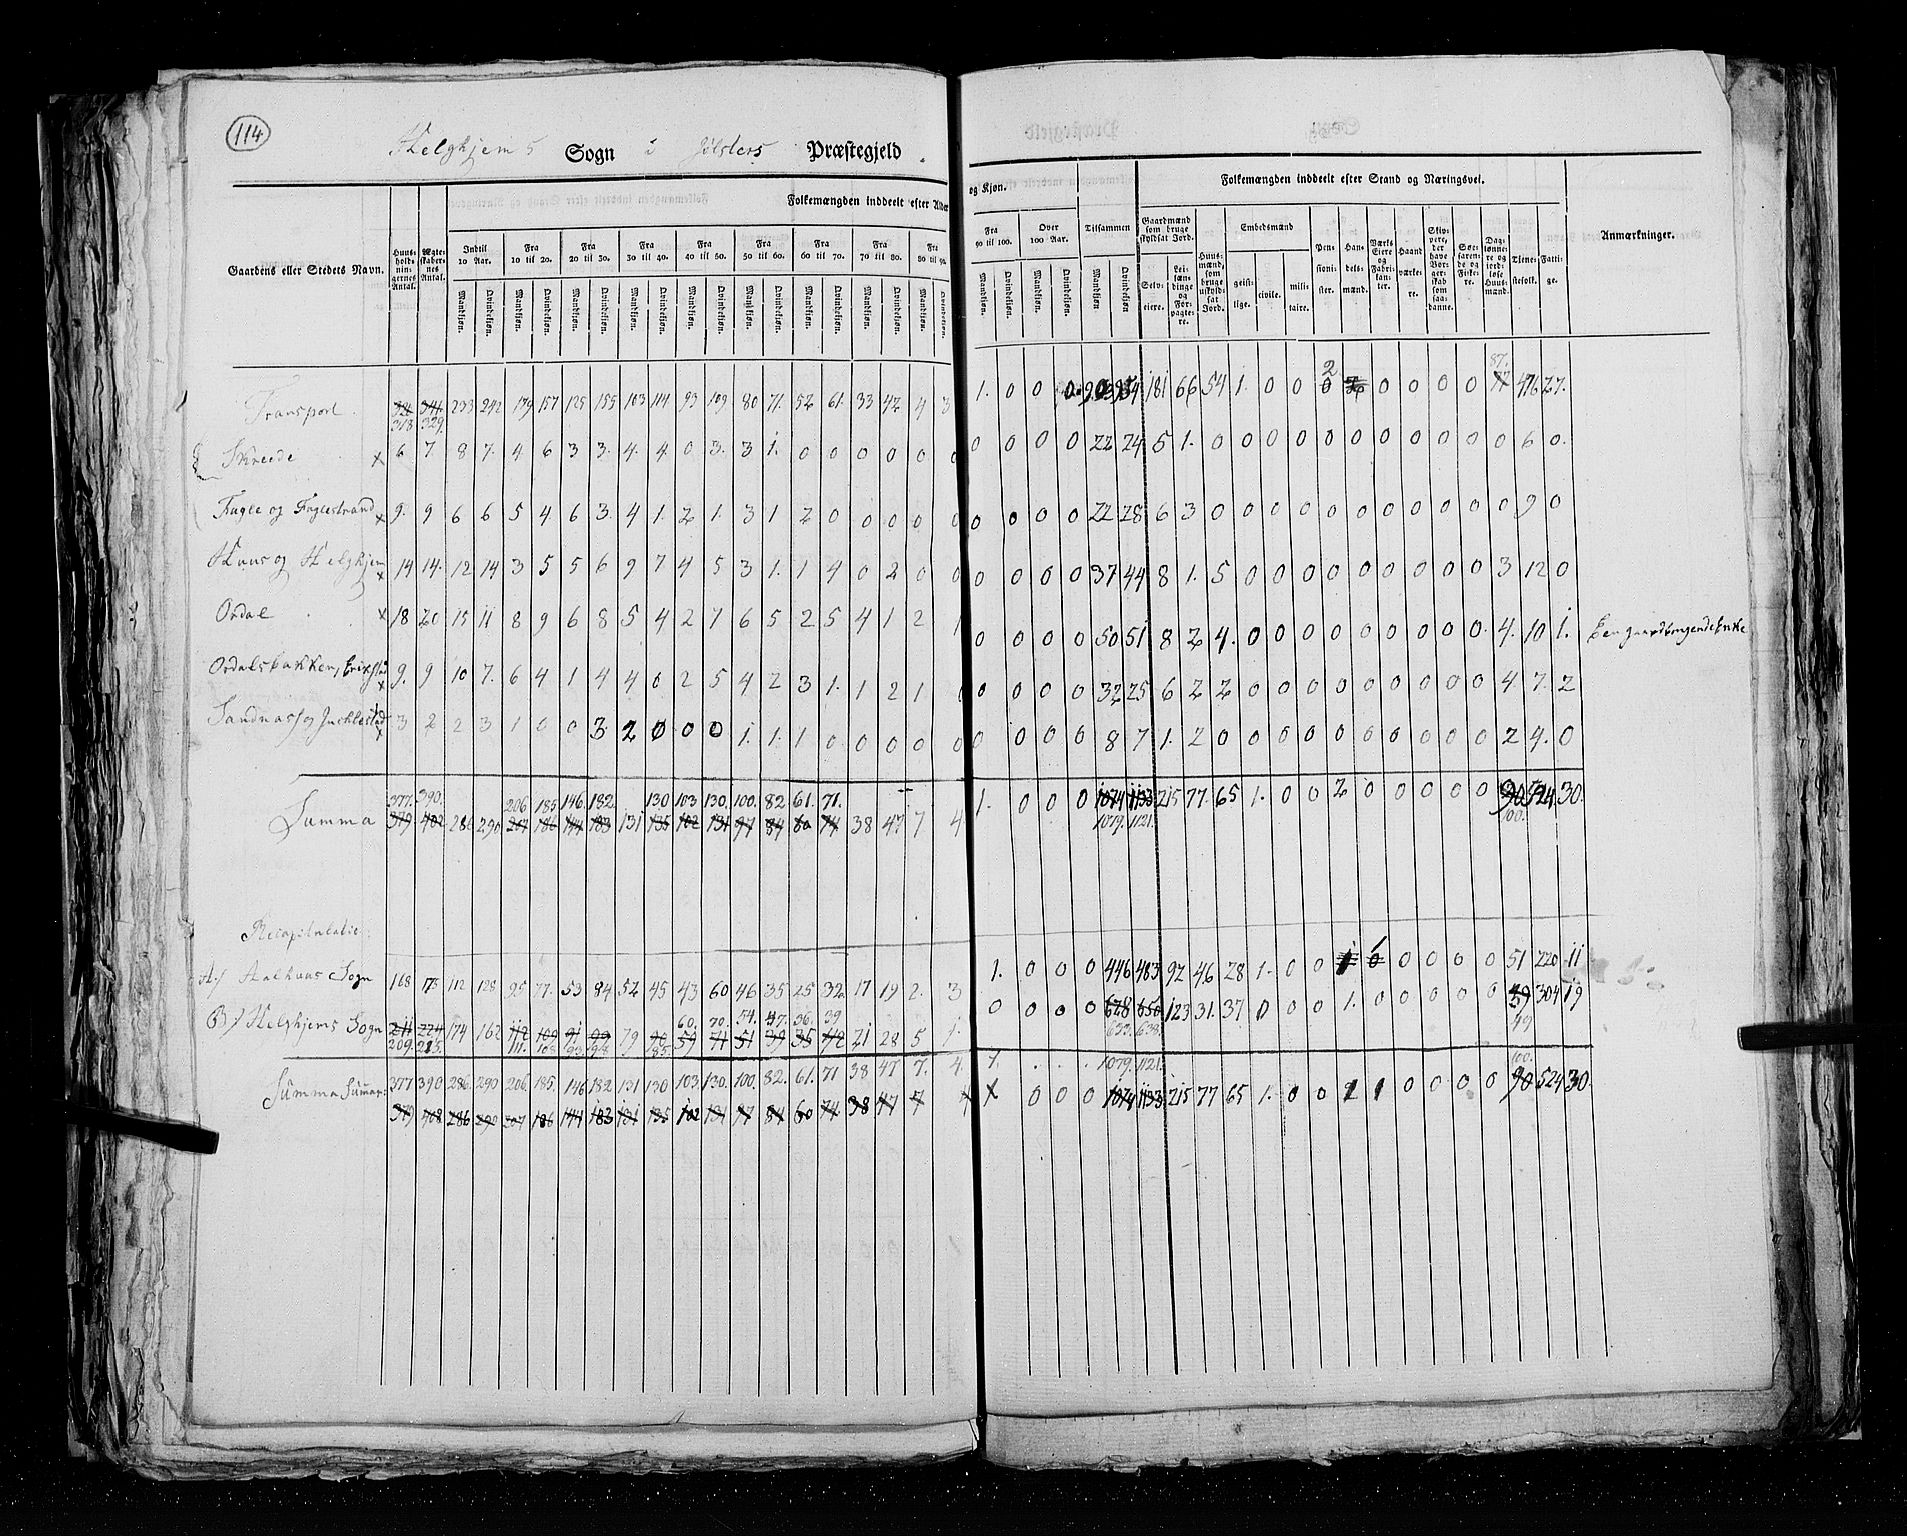 114
Helghjems Sogn i Jölsters Præstegjeld.
Gaardens eller Stedets Navn.
Huus-holdnin-gernes Antal.
Ægte-skaber-nes Antal.
Folkemængden inddeelt efter Alder og Kjøn.
Indtil 10 Aar. Fra 10 til 20. Fra 20 til 30. Fra 30 til 40. Fra 40 til 50. Fra 50 til 60. Fra 60 til 70. Fra 70 til 80. Fra 80 til 90. Fra 90 til 100. Over 100 Aar. Tilsammen
Mandkjøn. Qvindekjøn.
Folkemængden inddeelt efter Stand og Næringsvei.
Gaardmænd som bruge skyldsat Jord.
Selv-eiere.
Lei-lændinge og For-pagte-re.
Huus-mænd, som bruge uskyldsat Jord.
Embedsmænd
geist-lige. civile. mili-taire.
Pen-sioni-ster.
Han-dels-mænd.
Værks Eiere og Fabri-kan-ter.
Haand værke-re.
Skip-pere, der have Bor-ger-skab som saa-danne.
Søe-farende og Fiske-re.
Dag-lønne-re og jord-løse Huus-mænd.
Tjene-stefolk.
Fatti-ge.
Anmærkninger.
Transport 318 329 233 242 179 157 125 155 103 114 93 109 80 71. 52 61. 33 42 4 3 1. 0 0 0 903 954 181 66 54 1. 0 0 2 0 0 0 0 0 87. 476 27.
Skreede x 6 7 8 7. 4 6 3 3. 4. 4. 0 3. 3 1. 0 0 0 0 0 0 0 0 0 0 22 24 5 1. 0 0 0 0 0 0 0 0 0 0 0 6 0.
Fugle og Fuglestrand x 9. 9 6 6 5 4 6 3. 4 1. 2 1. 3 1 2 0 0 0 0 0 0 0 0 0 22 28 6 3 0 0 0 0 0 0 0 0 0 0 0 9 0
Huus og Helghjem x 14 14. 12 14 3 5 5 6 9 7 4 5 3 1. 1 4 0 2 0 0 0 0 0 0 37 44 8 1. 5 0 0 0 0 0 0 0 0 0 3 12 0
Ordal x 18 20 15 11 8 9 6 8 5 4 2 7 6 5 2 5 4 1 2 1 0 0 0 0 50 51 8 2 4. 0 0 0 0 0 0 0 0 0. 4. 10 1.
Ordalsbakken, x 9. 9 10 7. 6 4 1 4 4 0 2 5 4 2 3 1. 1 2 1 0 0 0 0 0 32 25 6 2 2 0 0 0 0 0 0 0 0 0 4. 7. 2
Sandnes og x 3 2 2 3 1 0 0 3 2 0 0 0 1. 1. 1 0 0 0 0 0 0 0 0 0 8 7 1. 2 0 0 0 0 0 0 0 0 0 0 2 4. 0
377. 390. 206 185 146 182. 130 103 130. 100. 82. 61. 71.
Summa 379 402 286 290 207 186 144 183 131 135 102 131 97 84 60 74 38 47 7 4 1. 0 0 0 1074 1133 215 77. 65 1. 0 0 2 0 0 0 0 0 90 524 30.
1079. 1121. 100.
Recapitulatie:
A./ Aalhuus Sogn 168 175 112 128 95 77. 53 84 52 45 43 60 46 35 25 32 17 19 2. 3 1. 0 0 0 446 483 92 46 28 1. 0 0 1 0 0 0 0 0 51 220 11
60. 70. 54. 47. 36. 39
B/ Helghjems Sogn 211 224 174 162 112 109 91 99 79 90 59 71 51 39 35 42 21 28 5 1. 0 0 0 0 628 650 123 31. 37 0 0 0 1. 0 0 0 0 0 304 19
209. 215. 111. 108 93 98 85 633. 638. 49
Summa Summar: 377 390 286. 290 206. 185. 146 182. 131 130 103. 130. 100. 82. 61. 71 38 47 7. 4. 1. 1079. 1121. 100.
379 408 286 290 207 186 144 183 131 135 102 131 97 84 60 74 38 47 7 4 0 0 0 1074 1133 215 77 65 1. 0 0 1 1 0 0 0 0 90 524 30.